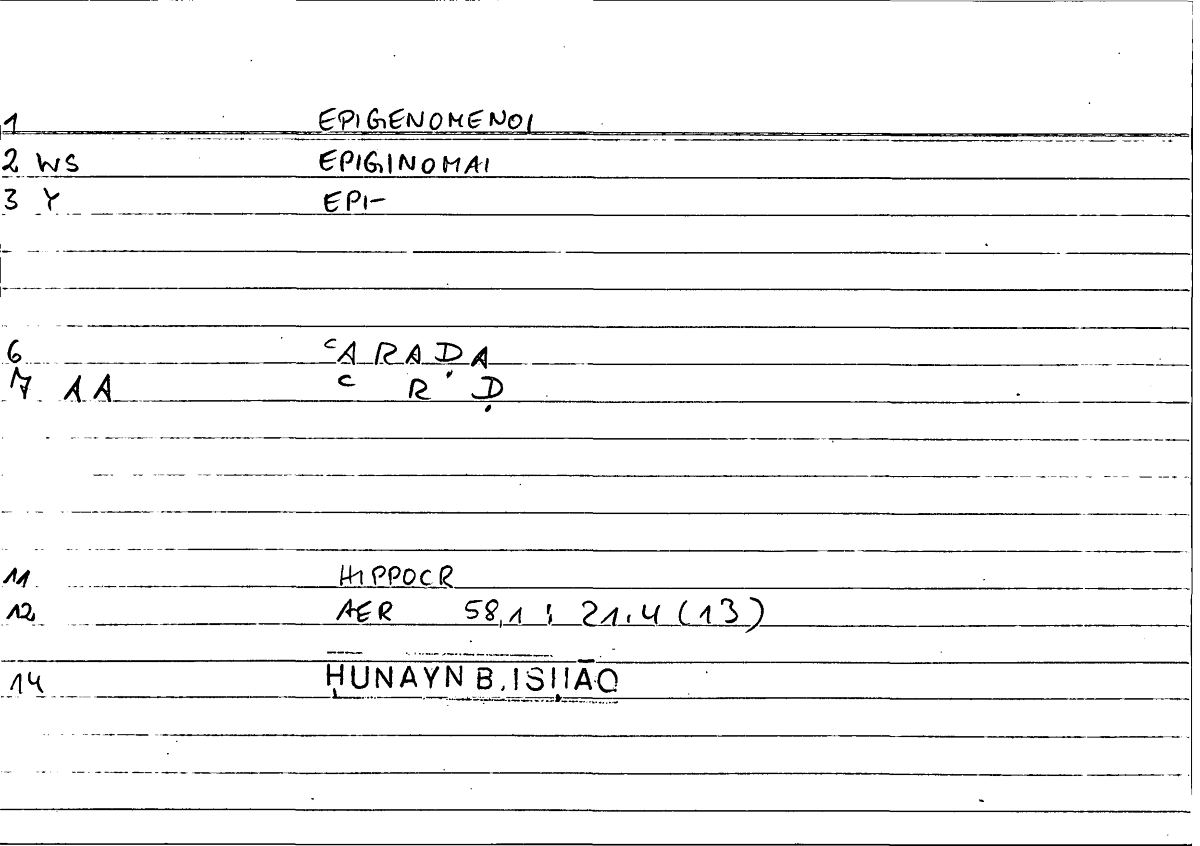 1 EPIGENOMENOI
2 WS EPIGINOMAI
3 Y EPI-
6 ʿARAḌA
7 AA ʿ R Ḍ
11 HIPPOCR
12 AER 58,1 : 21.4 (13)
14 ḤUNAYN B. ISḤĀQ